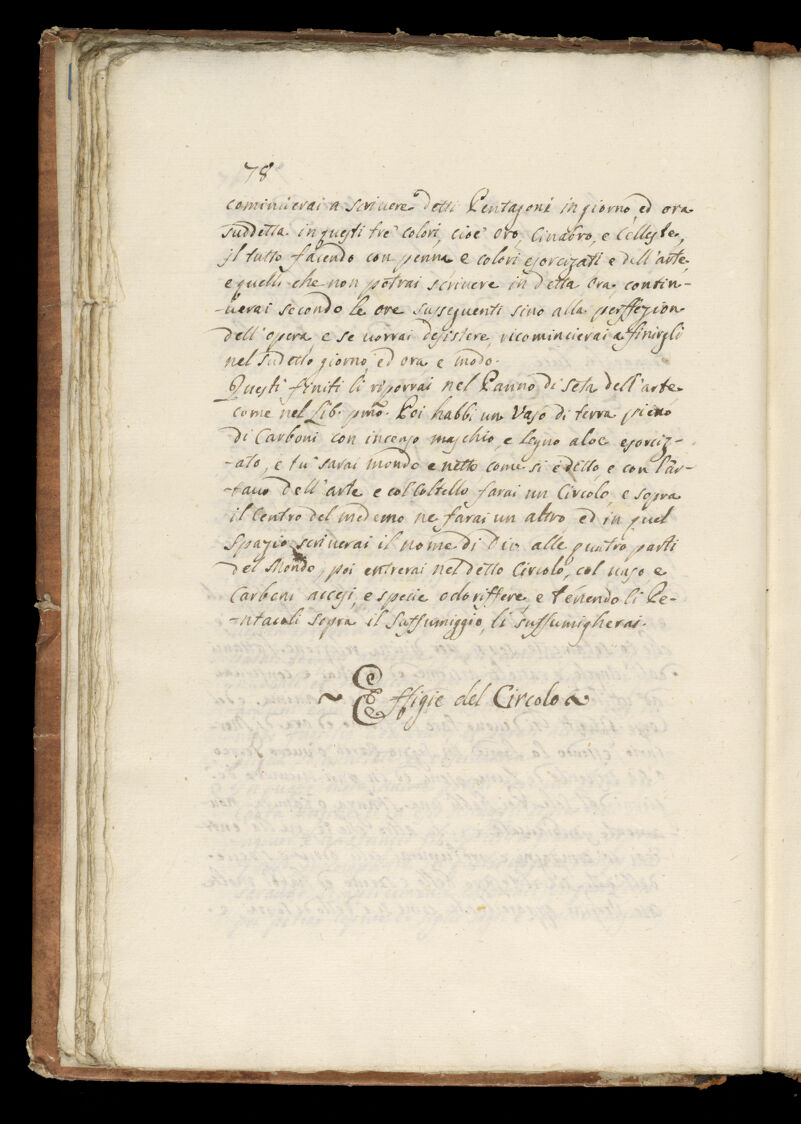 78
comincierai a scrivere detti Pentagoni in giorno, ed ora
suddetta in questi tre colori, cioè oro, Cinabro, e Celleste,
il tutto facendo con penna e colori esorcizati e dell'arte,
e quelli che non potrai scrivere in detta ora, contin-
-uerai secondo le ore susseguenti sino alla perffezion
dell'opera, e se vorrai desistere, ricomincierai a ffinirgli
nel sudetto giorno, ed ora e modo.
Questi finiti li riporrai nel Panno di seta dell'arte
come nel Lib. pmo. Poi habbi un Vaso di terra pieno
di Carboni con incenso maschio, e legno aloe esorciz-
-ato, e tu sarai mondo e netto come si è detto, e con l'ar-
-tavo dell'arte e col Coltello farai un Circolo, e sopra
il Centro del medemo ne farai un altro, ed in quel
spazio scriverai il nome di Dio alle quatro parti
del Mondo, poi entrerai nel detto Circolo, col vaso e
Carboni accesi, e specie odoriffere, e tenendo li Pe-
-ntacoli sopra il suffumiggio, li suffumigherai.
~ Effigie del Circolo